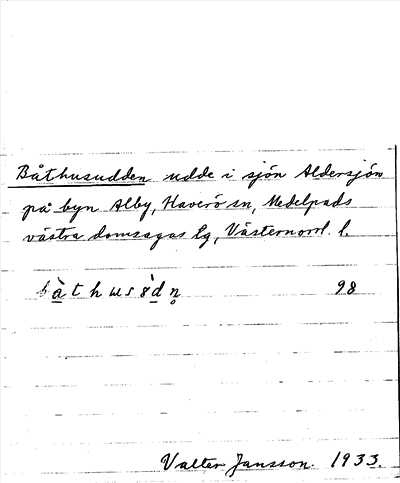 Båthusudden udde i sjön Aldersjön
på byn Alby, Haverö sn, Medelpads
västra domsagas lg, Västernorrl. l.
98
Valter Jansson. 1933.